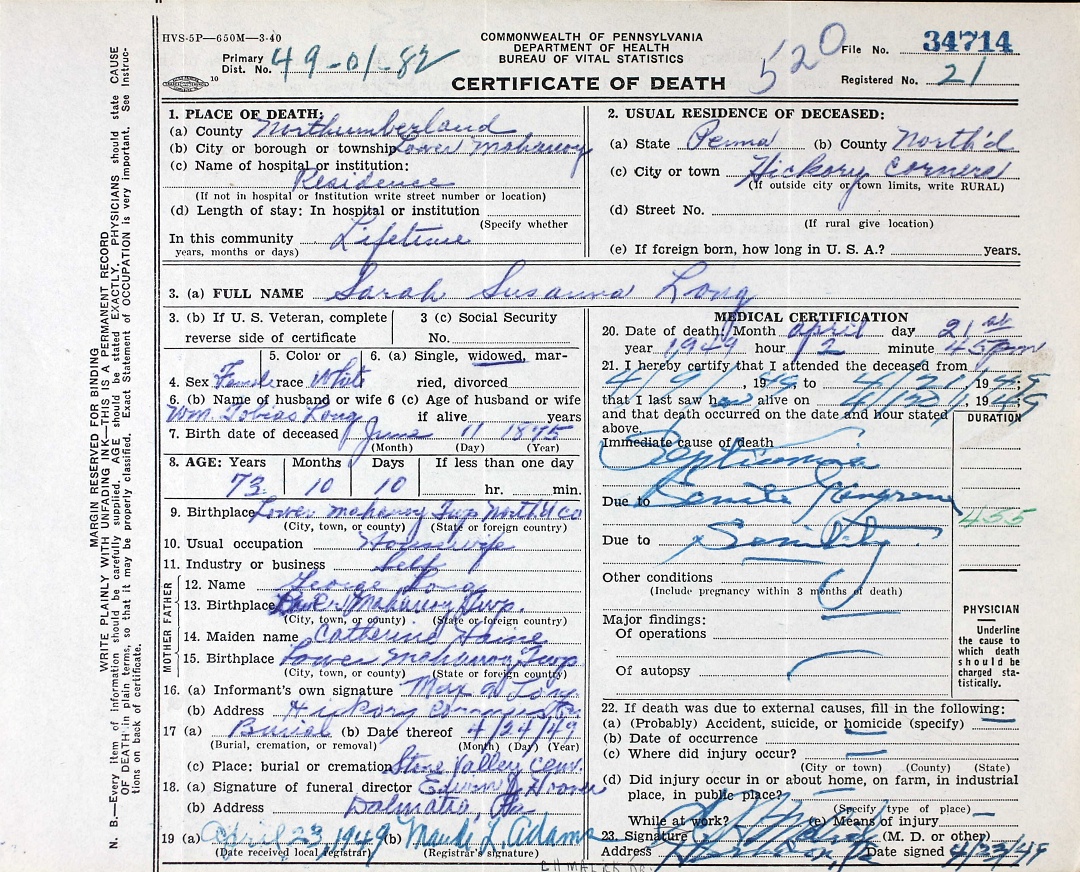 HVS-5P—650M—3-40
Primary Dist. No. 49-01-82
COMMONWEALTH OF PENNSYLVANIA
DEPARTMENT OF HEALTH
BUREAU OF VITAL STATISTICS
CERTIFICATE OF DEATH
520
File No. 34714
Registered No. 21
MARGIN RESERVED FOR BINDING
WRITE PLAINLY WITH UNFADING INK—THIS IS A PERMANENT RECORD
N. B.—Every item of information should be carefully supplied. AGE should be stated EXACTLY. PHYSICIANS should state CAUSE
OF DEATH in plain terms, so that it may be properly classified. Exact Statement of OCCUPATION is very important. See Instruc-
tions on back of certificate.
1. PLACE OF DEATH:
(a) County Northumberland
(b) City or borough or township Lower Mahanoy
(c) Name of hospital or institution:
Residence
(If not in hospital or institution write street number or location)
(d) Length of stay: In hospital or institution
(Specify whether
In this community Lifetime
years, months or days)
2. USUAL RESIDENCE OF DECEASED:
(a) State Penna (b) County North'd
(c) City or town Hickory Corners
(If outside city or town limits, write RURAL)
(d) Street No.
(If rural give location)
(e) If foreign born, how long in U. S. A.? years.
3. (a) FULL NAME Sarah Susanna Long
3. (b) If U. S. Veteran, complete
reverse side of certificate
3 (c) Social Security
No.
4. Sex Female
5. Color or race White
6. (a) Single, widowed, mar-
ried, divorced
6. (b) Name of husband or wife
Wm. Tobias Long
6 (c) Age of husband or wife
if alive years
7. Birth date of deceased June 11 1875
(Month) (Day) (Year)
8. AGE: Years Months Days If less than one day
73 10 10 hr. min.
9. Birthplace Lower Mahanoy Twp North'd Co
(City, town, or county) (State or foreign country)
10. Usual occupation Housewife
11. Industry or business Self
FATHER
12. Name George
13. Birthplace Lower Mahanoy Twp.
(City, town, or county) (State or foreign country)
MOTHER
14. Maiden name Catherine
15. Birthplace Lower Mahanoy Twp
(City, town, or county) (State or foreign country)
16. (a) Informant's own signature Max
(b) Address Hickory Corners Pa.
17 (a) Burial (b) Date thereof 4/24/49
(Burial, cremation, or removal) (Month) (Day) (Year)
(c) Place: burial or cremation Stone Valley Cem.
18. (a) Signature of funeral director Edwin
(b) Address Dalmatia, Pa
19 (a) April 23, 1949 (b) Maude L. Adams
(Date received local registrar) (Registrar's signature)
MEDICAL CERTIFICATION
20. Date of death: Month April day 21st
year 1949 hour 12 minute 45 pm
21. I hereby certify that I attended the deceased from
4/9/, 1949 to 4/21/ 1949;
that I last saw her alive on 4/21/, 1949
and that death occurred on the date and hour stated
above.
DURATION
Immediate cause of death
Septicemia
Due to Senile Gangrene
455
Due to Senility
Other conditions
(Include pregnancy within 3 months of death)
Major findings:
Of operations
Of autopsy
PHYSICIAN
Underline
the cause to
which death
should be
charged sta-
tistically.
22. If death was due to external causes, fill in the following:
(a) (Probably) Accident, suicide, or homicide (specify)
(b) Date of occurrence
(c) Where did injury occur?
(City or town) (County) (State)
(d) Did injury occur in or about home, on farm, in industrial
place, in public place?
(Specify type of place)
While at work? (e) Means of injury
23. Signature (M. D. or other)
Address Date signed 4/23/49